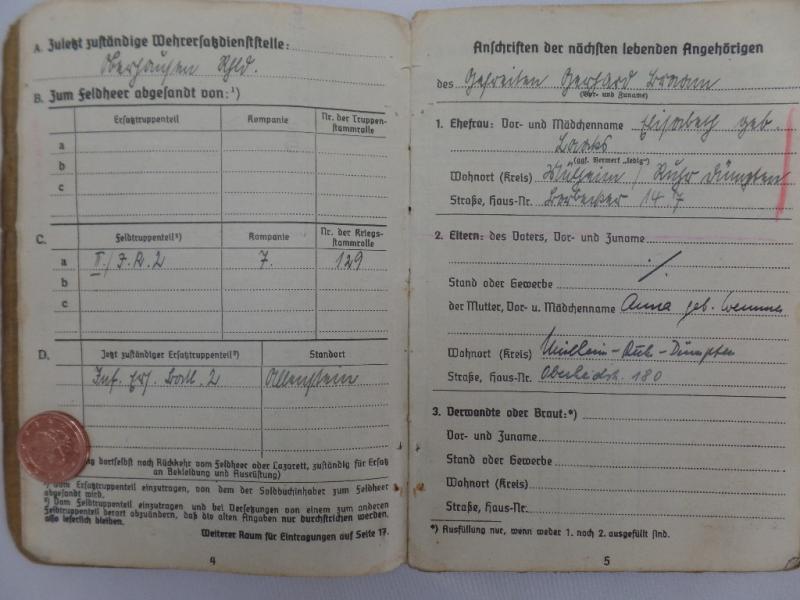 A. Zuletzt zuständige Wehrersatzdienststelle:
Oberhausen Rhld.
B. Zum Feldheer abgesandt von:¹)
Ersatztruppenteil Kompanie Nr. der Truppen-
stammrolle
a
b
c
C. Feldtruppenteil²) Kompanie Nr. der Kriegs-
stammrolle
a II./J.R.2 7. 129
b
c
D. Jetzt zuständiger Ersatztruppenteil²) Standort
Inf. Ers. Batl. 2 Allenstein
dortselbst nach Rückkehr vom Feldheer oder Lazarett, zuständig für Ersatz
an Bekleidung und Ausrüstung)
¹) Vom Ersatztruppenteil einzutragen, von dem der Soldbuchinhaber zum Feldheer
abgesandt wird.
²) Vom Feldtruppenteil einzutragen und bei Versetzungen von einem zum anderen
Feldtruppenteil derart abzuändern, daß die alten Angaben nur durchstrichen werden,
also leserlich bleiben.
Weiterer Raum für Eintragungen auf Seite 17.
4
Anschriften der nächsten lebenden Angehörigen
des Gefreiten Gerhard Braam
(Vor- und Zuname)
1. Ehefrau: Vor- und Mädchenname Elisabeth geb.
(ggf. Vermerk „ledig")
Wohnort (Kreis) Mülheim / Ruhr Dümpten
Straße, Haus-Nr. Borbecker 147
2. Eltern: des Vaters, Vor- und Zuname
./.
Stand oder Gewerbe
der Mutter, Vor- u. Mädchenname Anna geb.
Wohnort (Kreis) Mülheim-Ruh-Dümpten
Straße, Haus-Nr. 180
3. Verwandte oder Braut:*)
Vor- und Zuname
Stand oder Gewerbe
Wohnort (Kreis)
Straße, Haus-Nr.
*) Ausfüllung nur, wenn weder 1. noch 2. ausgefüllt sind.
5